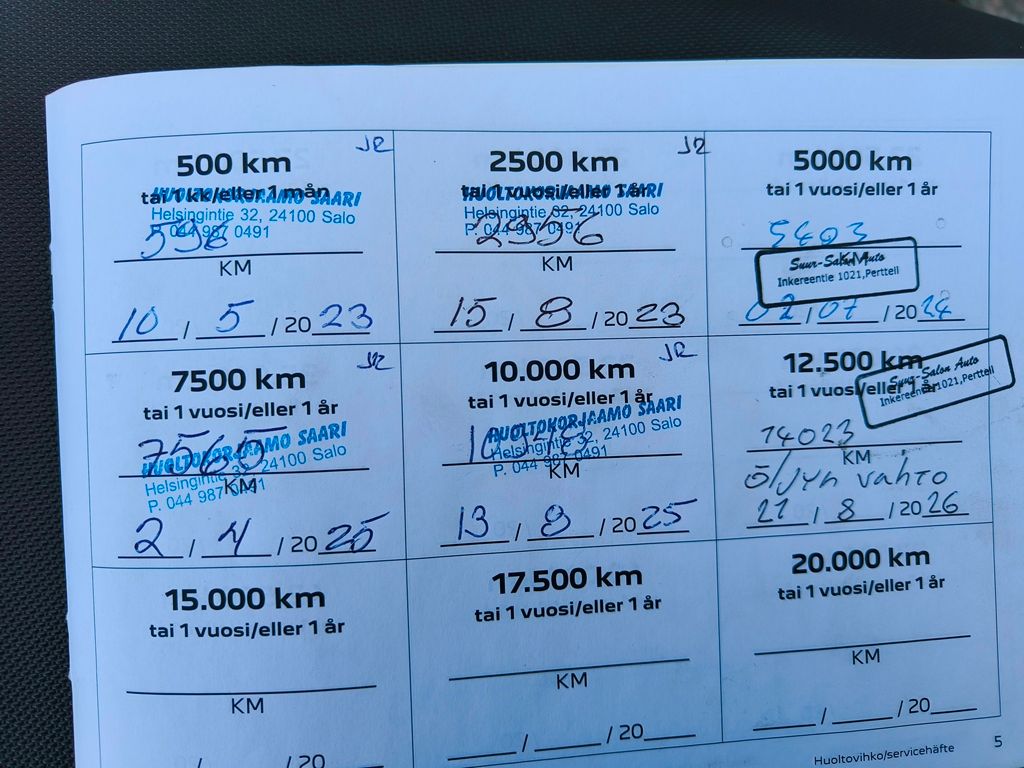 JR
500 km
tai 1 kk/eller 1 mån
HUOLTOKORJAAMO SAARI
Helsingintie 32, 24100 Salo
P. 044 987 0491
KM
10 / 5 / 20 23
JR
2500 km
tai 1 vuosi/eller 1 år
HUOLTOKORJAAMO SAARI
Helsingintie 32, 24100 Salo
P. 044 987 0491
2956
KM
15 / 8 / 20 23
5000 km
tai 1 vuosi/eller 1 år
5403
KM
Suur-Salon Auto
Inkereentie 1021,Pertteli
02 / 07 / 20 24
JR
7500 km
tai 1 vuosi/eller 1 år
7565
HUOLTOKORJAAMO SAARI
Helsingintie 32, 24100 Salo
KM
P. 044 987 0491
2 / 4 / 20 25
JR
10.000 km
tai 1 vuosi/eller 1 år
HUOLTOKORJAAMO SAARI
Helsingintie 32, 24100 Salo
KM
P. 044 987 0491
13 / 8 / 20 25
12.500 km
tai 1 vuosi/eller 1 år
Suur-Salon Auto
Inkereentie 1021,Pertteli
14023
KM
öljyn vahto
21 / 8 / 20 26
15.000 km
tai 1 vuosi/eller 1 år
KM
/ / 20
17.500 km
tai 1 vuosi/eller 1 år
KM
/ / 20
20.000 km
tai 1 vuosi/eller 1 år
KM
/ / 20
Huoltovihko/servicehäfte 5